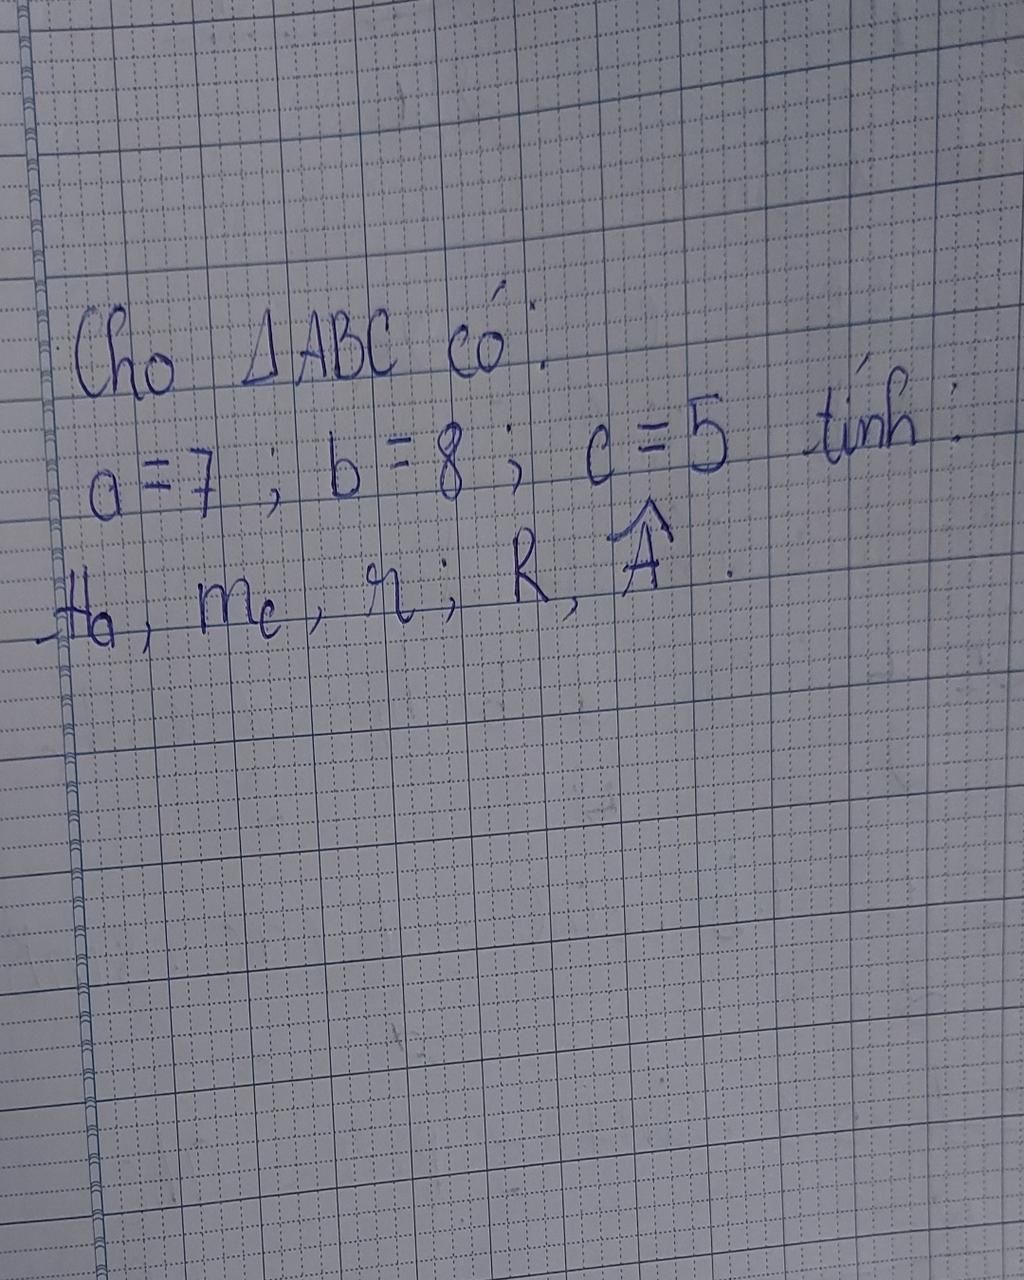 Cho ΔABC có:
a = 7 ; b = 8 ; c = 5 tính :
Ha, mc, r ; R, Â .